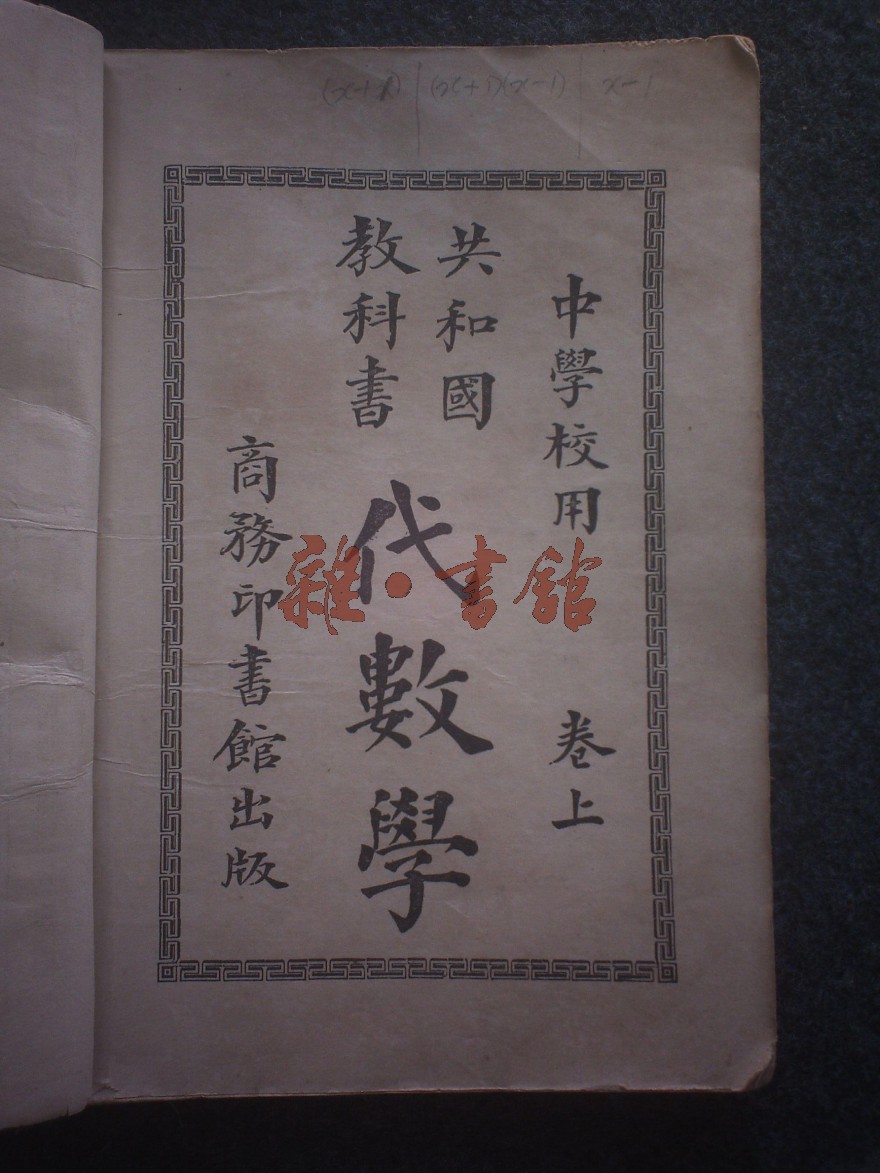 (x+1) | (x+1)(x-1) | x-1
中學校用 卷上
共和國
教科書
代數學
商務印書館出版
雜·書館